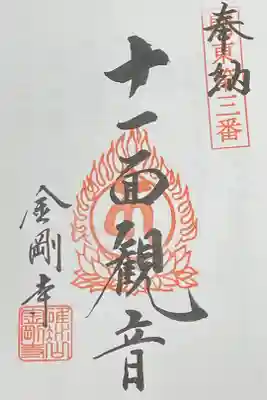 奉納
東第三番
十一面観音
金剛寺